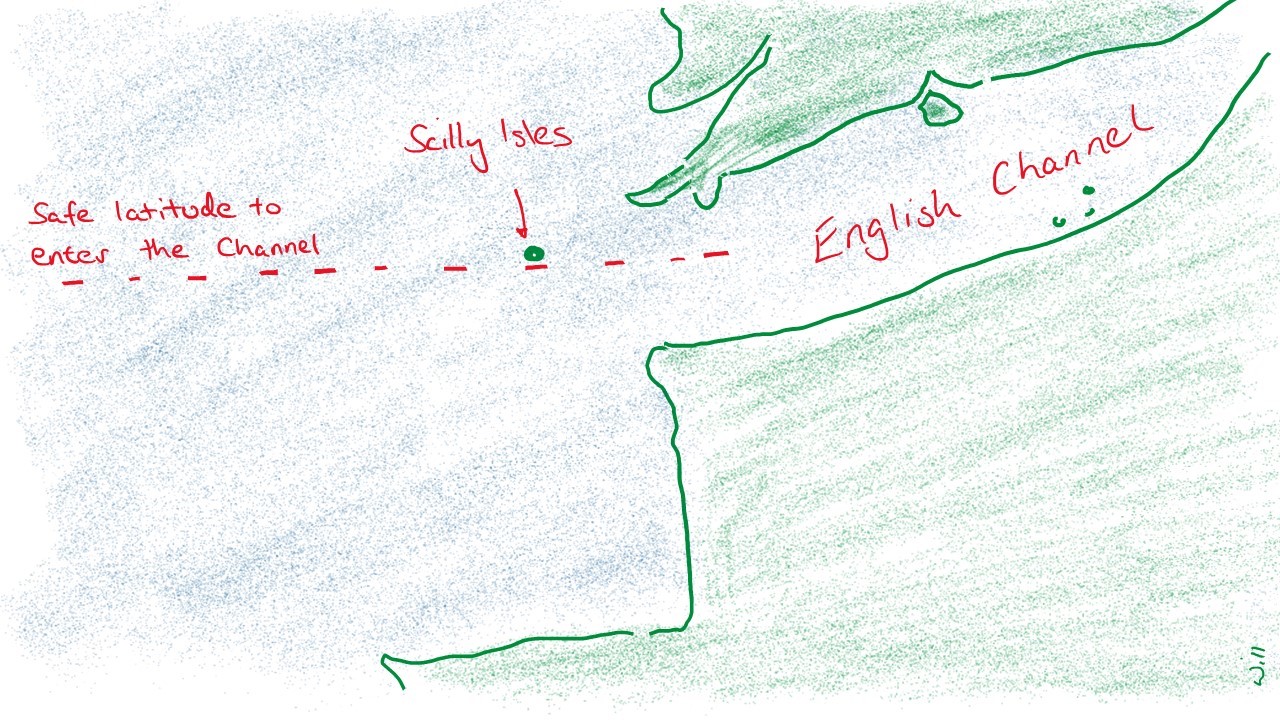 Scilly Isles
Safe latitude to
enter the Channel
English Channel
Will